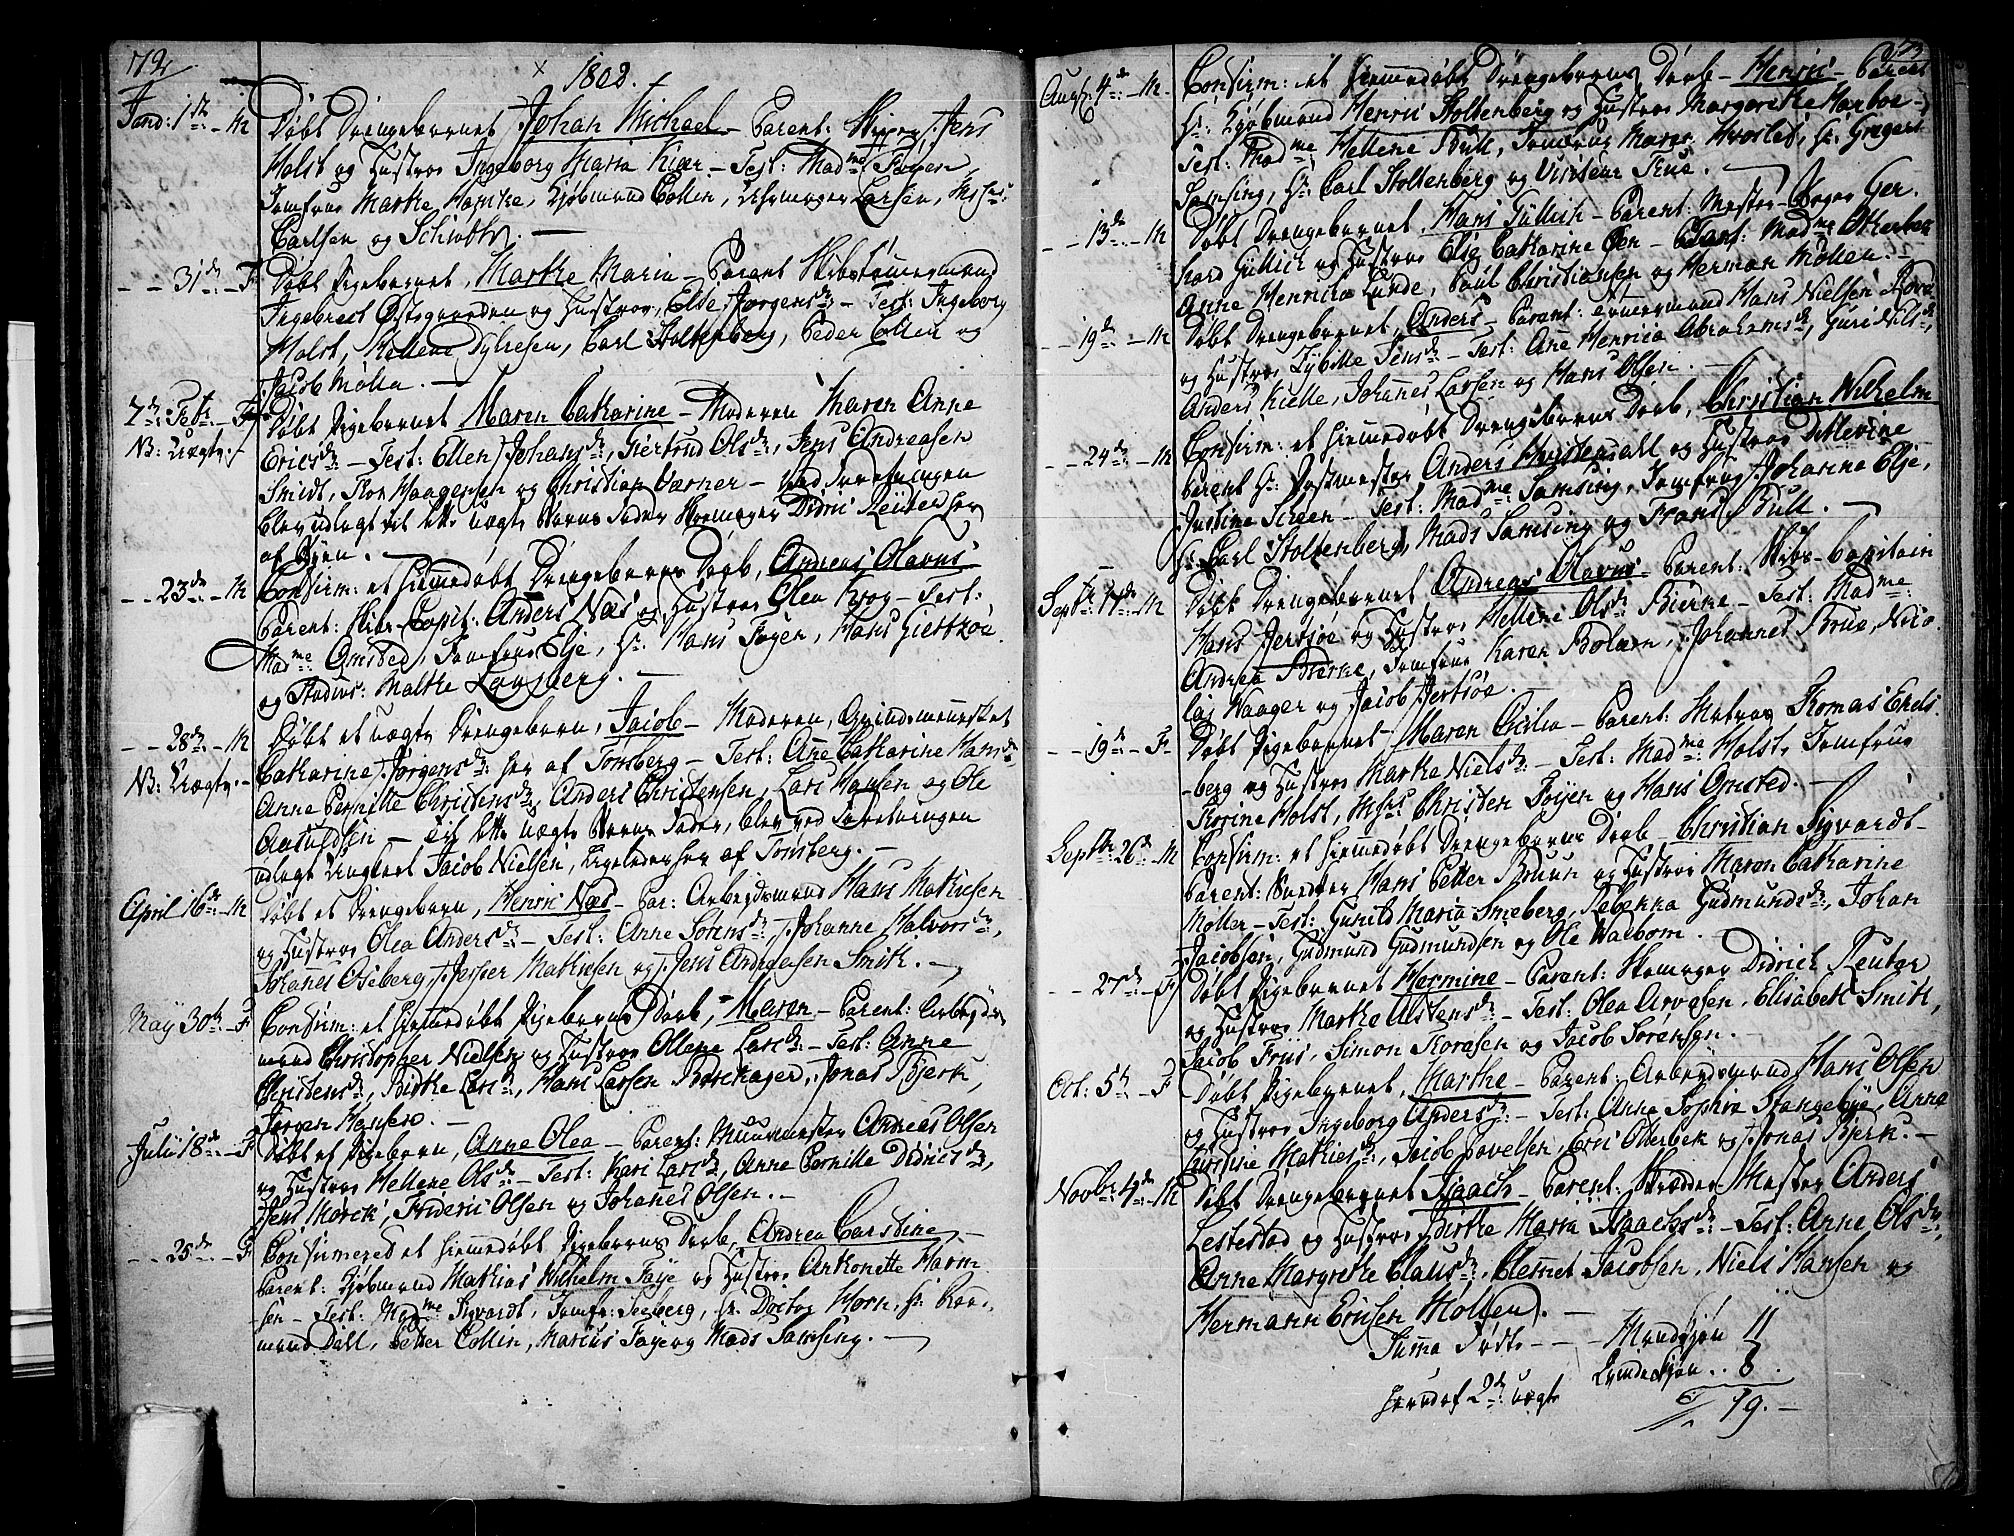 172
1808.
Jand: 1ste – M Døbt Drengebarnet, Johan Michael – Parent: Skipper Jens
Holst og Hustroe Ingeborg Maria Kiær – Test: Madme Foyen
Jomfrue Marthe Hancke, Kjøbmand Collin, Uhrmager Larsen, Msrs:
Carlsen og Schiøtt. –
– – 31de – F Døbt Pigebarnet, Marthe Maria – Parent Skibstømermand
Ingebret Østegaarden og Hustroe, Else Jørgensdr – Test: Ingeborg
Holst, Hellene Dyhresen, Carl Stoltenberg, Peder Collin og
Jacob Mølla. –
7de Febr – F Døbt Pigebarnet Maren Catharine – Moderen Maren Anne
NB: Uægte. – Ericsdr – Test: Ellen Johansdr, Giertrud Olsdr, Jens Andreasen
Smidt, Thor Haagensen og Christian Værner – Ved Forretningen
blev udlagt til dette uægte Barns Fader Skomager Didric Reuter her
af Byen. –
– – 23de – M Confirm: et hiemmedøbt Drengebarns Daab, Andreas Olavus
Parent: Skibs-Capit: Anders Næs og Hustroe Olea Krog – Test:
Madme Omsted, Jomfrue Elje, Hr: Hans Foyen, Hans Giertsøe
og Studios: Malthe Lansberg. –
– – 28de – M Døbt et uægte Drengebarn, Jacob – Moderen, Qvindemennesket
NB: Uægte. – Catharine Jørgensdr: her af Tønsberg – Test: Ane Catharine Hansdr
Anne Pernille Christinsdr, Anders Christensen, Lars Hansen og Ole
Aasuldsen – Til dette uægte Barns Fader, blev ved Forretningen
udlagt Ungkarl Jacob Nielsen, Ligeledes her af Tønsberg. –
April 16de – M Døbt et Drengebarn, Henric Næs – Par: Arbejdsmand Hans Mathiesen
og Hustroe Olea Andersdr – Test: Anne Sørensdr, Johanne Halvorsdr,
Johanes Oseberg, Jesper Mathiesen og Jens Andreasen Smith. –
May 30te – F Confirm: et hiemmedøbt Pigebarns Daab, – Maren – Parent: Arbeyds-
mand Christopher Nielsen og Hustroe Ollene Larsdr – Test: Anne
Christensdr, Birthe Larsdr, Hans Larsen Barchager, Jonas Bjerk,
Jørgen Hansen. –
Julii 18de – F Døbt et Pigebarn, Anne Olea – Parent: Muurmester Andreas Olsen
og Hustroe Hellene Olsdr – Test: Kari Larsdr, Anne Pernille Didricsdr,
Jens Morck, Frideric Olsen og Johanes Olsen. –
– – 25de – F Confirmered et hiemmedøbt Pigebarns Daab, Andrea Carstine –
Parent: Kjøbmand Mathias Wilhelm Faye og Hustroe Anthonette Harm-
sen – Test: Madme Sigvardt, Jomfr: Seeberg, Hr: Doctor Horn, Hr: Raad-
mand Dall, Petter Collin, Marcus Faye og Mads Samsing. –
173
Augst: 4de – M. Confirm: et hiemmedøbt Drengebarns Daab – Henric – Parent
Hr: Kjøbmand Henric Stoltenberg og Hustroe Margarethe Harboe –
Test: Madme Hellene Bull, Jomfrue Maren Hvoslef, Hr: Gregers
Samsing, Hr: Carl Stoltenberg og Visiteur True. –
– – 13de – M Døbt Drengebarnet, Hans Güllich – Parent: Mester-Bager Ger-
hard Güllich og Hustroe Elsy Catharine Øen – Test: Madme Otterbek
Anne Henricha Lunde, Poul Christiansen og Herman Møllen. –
– – 19de – M Døbt Drengebarnet, Anders – Parent: Tømermand Hans Nielsen
og Hustroe Sybille Jensdr – Test: Ane Henrica Abrahamsdr, Guri Nilsdr,
Anders Kielle, Johannes Larsen og Hans Olsen. –
– – 24de – M Confirm: et hiemmedøbt Drengebarns Daab, Christian Wilhelm
Parent Hr: Postmester Anders og Hustroe Ditlevine
Justine Sireen – Test: Madme Samsing, Jomfrue Johanne Elje,
Hr: Carl Stoltenberg, Mads Samsing og Frans Bull. –
Septbr 11de – M Døbt Drengebarnet Andreas Olavus – Parent: Skibs-Capitain
Hans Jersøe og Hustroe Hellene Olsdr Bierne – Test: Madme:
Andrea Bierne, Jomfrue Karen Bolærn, Johannes Brue, Nico-
lay Waager og Jacob Jertsøe.
– – 19de – F. Døbt Pigebarnet Maren Cicilia – Parent: Matros Thomas Engels-
berg og Hustroe Marthe Nielsdr – Test: Madme Holst, Jomfrue
Thorine Holst, Msrs Christen Foyen og Hans Omsted. –
Septbr 26de – M Confirm: et hiemmedøbt Drengebarns Daab – Christian Sigvardt –
Parent: Hans Petter Bruun og Hustroe Maren Catharine
Møller – Test: Gunild Maria Smeberg, Rebekka Gudmundsdr, Johan
Jacobsen, Gudmund Gudmundsen og Ole Walbom. –
– – 27de – F Døbt Pigebarnet Hermine – Parent: Skomager Didrich Reuter
og Hustroe Marthe Alstensdr – Test: Olea Arvesen, Elisabeth Smith,
Jacob Friis, Simon Thoresen og Jacob Sørensen. –
Oct: 5te – F Døbt Pigebarnet, Marthe – Parent: Arbeydsmand Hans Olsen
og Hustroe Ingeborg Andersdr: – Test: Anne Sophia Stangebye, Anne
Cirstine Mathiesdr, Jacob Povelsen, Eric Otterbek og Jonas Bjerk. –
Novbr: 4de – M Døbt Drengebarnet Isaach – Parent: Skrædder-Mester Anders
Lestestad og Hustroe Birthe Maria Isaachsdr – Test: Anne Olsdr,
Anne Margrethe Clausdr, Clemet Jacobsen, Niels Hansen og
Hermann Ericsen Møllen. –
Suma Fødte – – – Mandkjøn 11
Qvindekjøn . . 8.
heraf 2de uægte 19. –